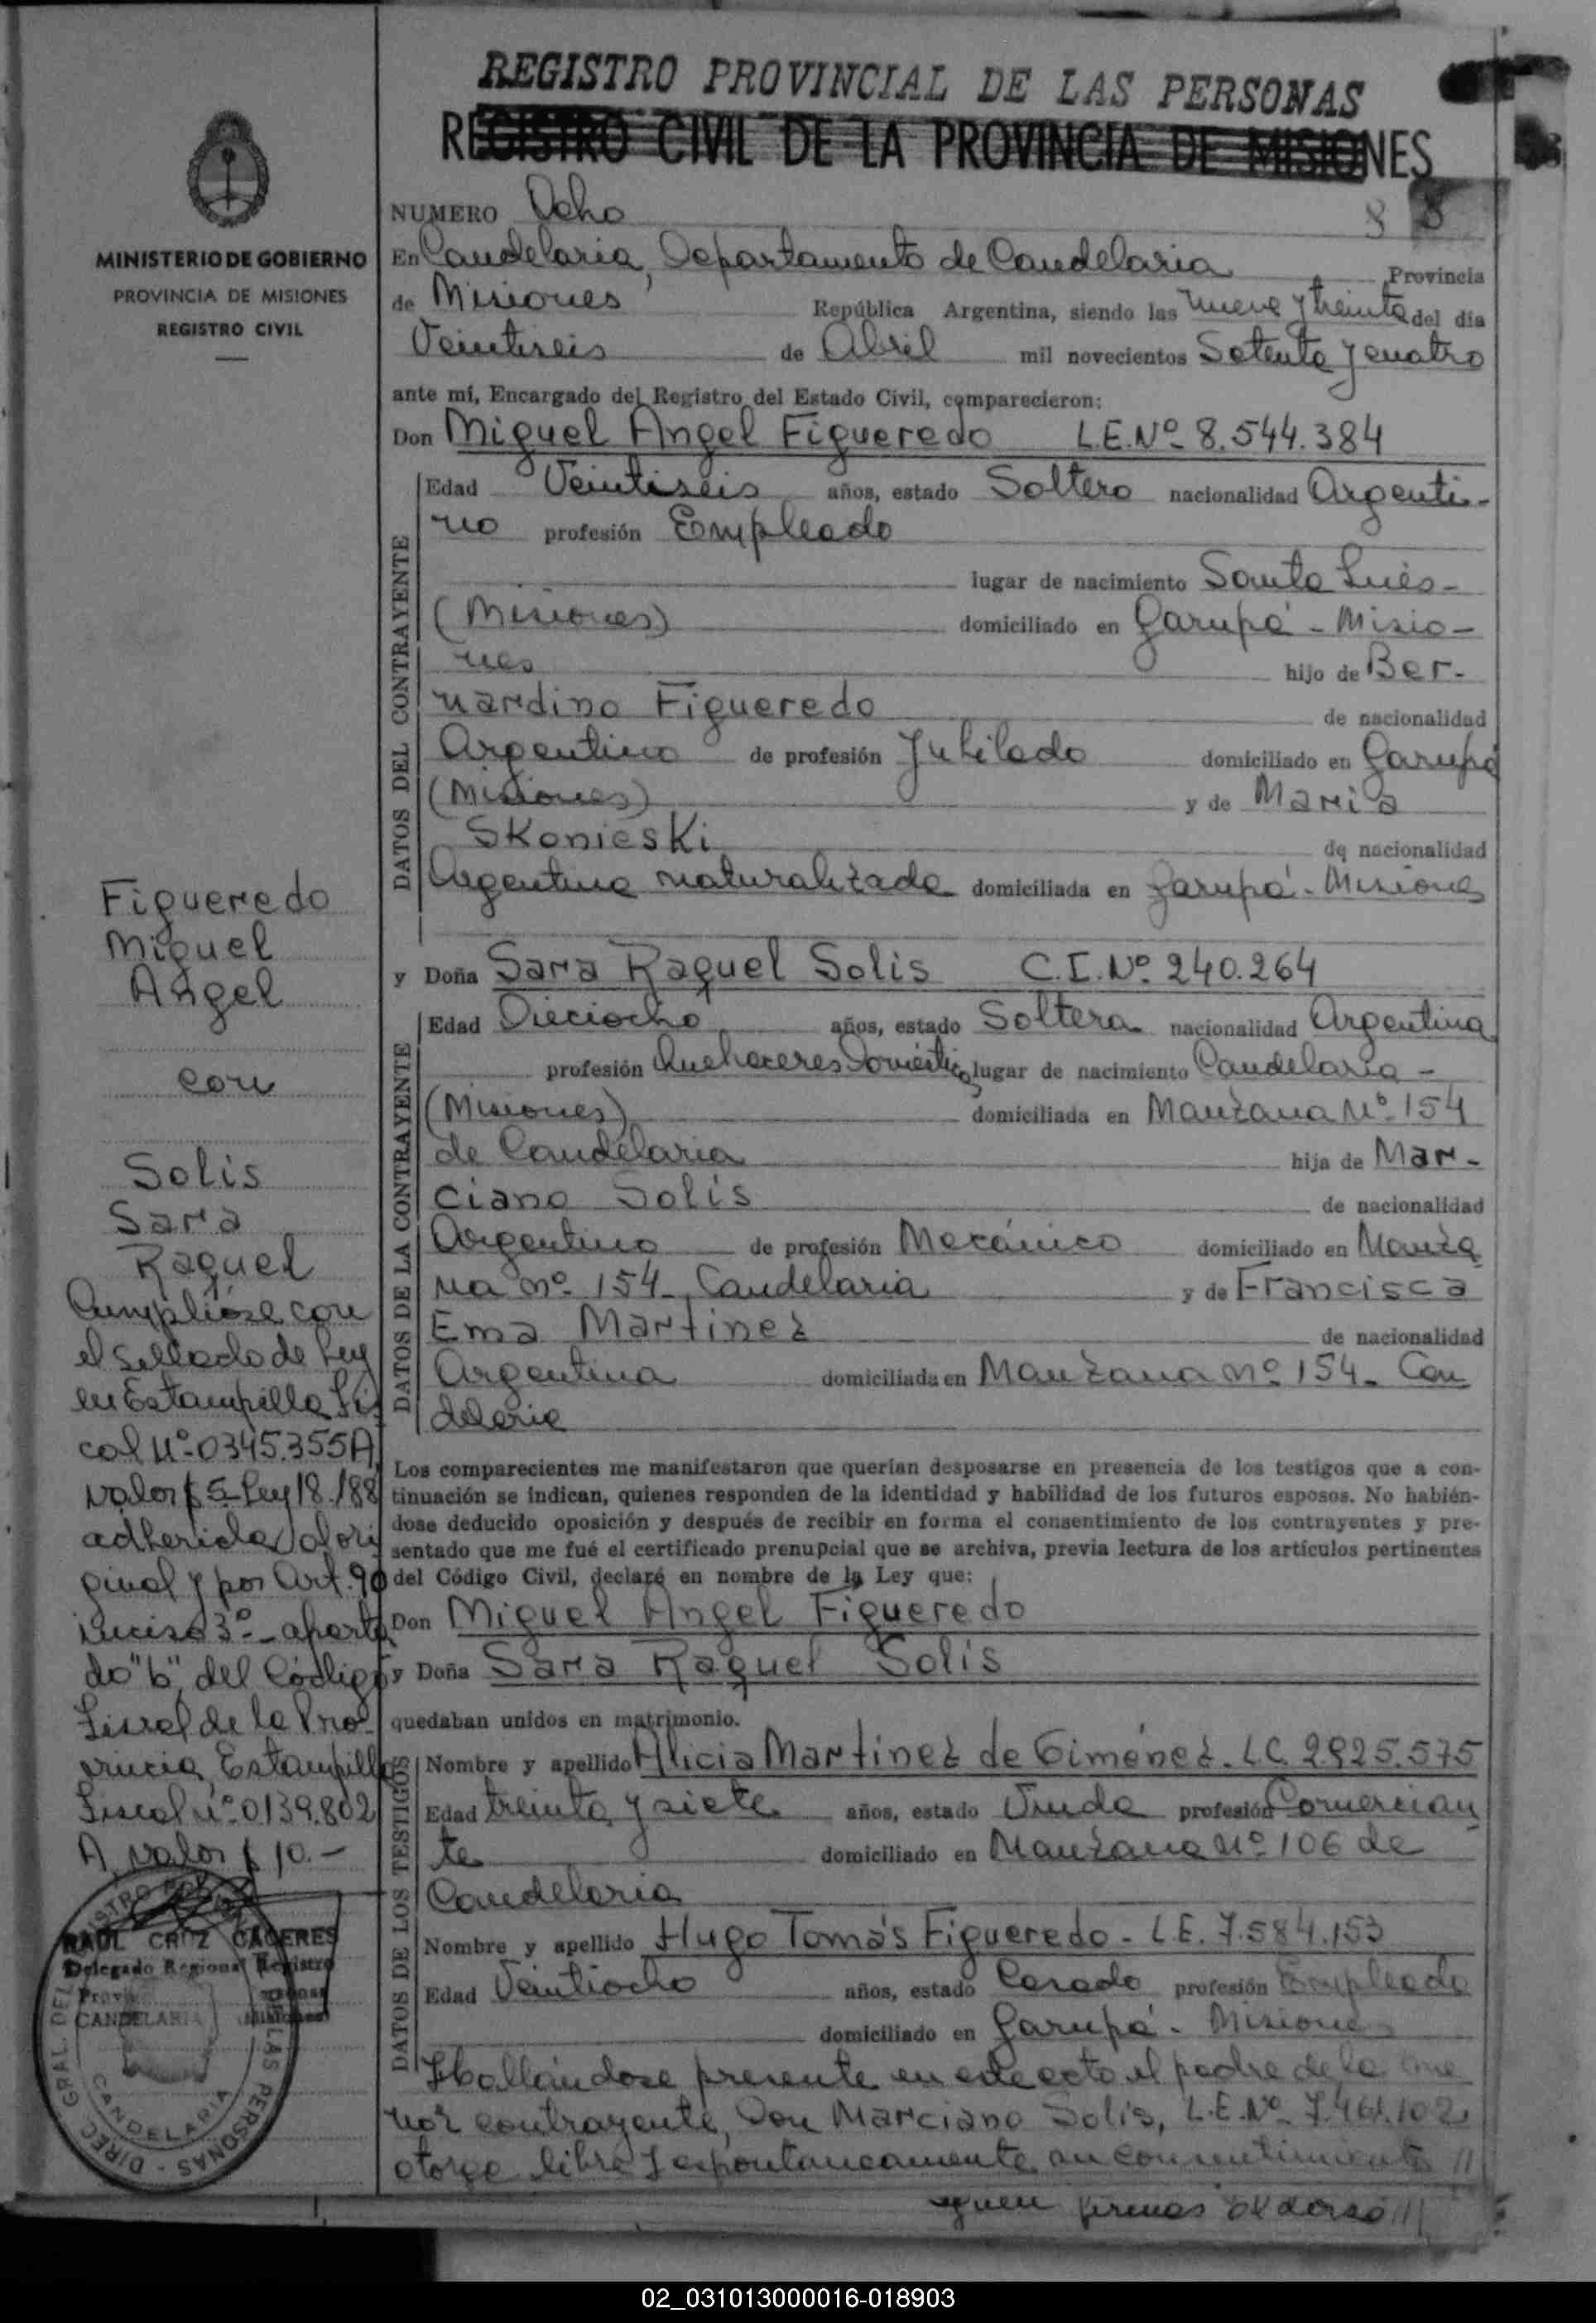 REGISTRO PROVINCIAL DE LAS PERSONAS
REGISTRO CIVIL DE LA PROVINCIA DE MISIONES
MINISTERIO DE GOBIERNO
PROVINCIA DE MISIONES
REGISTRO CIVIL
NUMERO Ocho 8 8
En Candelaria, Departamento de Candelaria Provincia
de Misiones República Argentina, siendo las nueve y treinta del día
Veintiseis de Abril mil novecientos Setenta y cuatro
ante mí, Encargado del Registro del Estado Civil, comparecieron:
Don Miguel Angel Figueredo L.E.Nº 8.544.384
DATOS DEL CONTRAYENTE
Edad Veintiseis años, estado Soltero nacionalidad Argenti-
no profesión Empleado
lugar de nacimiento Santa Inés-
(Misiones) domiciliado en Garupá - Misio-
nes hijo de Ber-
nardino Figueredo de nacionalidad
Argentino de profesión Jubilado domiciliado en Garupá
(Misiones) y de Maria
Skonieski de nacionalidad
Argentina naturalizada domiciliada en Garupá - Misiones
y Doña Sara Raquel Solis C.I.Nº 240.264
DATOS DE LA CONTRAYENTE
Edad Dieciocho años, estado Soltera nacionalidad Argentina
profesión Quehaceres Domésticos lugar de nacimiento Candelaria -
(Misiones) domiciliada en Manzana Nº 154
de Candelaria hija de Mar-
ciano Solis de nacionalidad
Argentino de profesión Mecánico domiciliado en Manza
na nº 154 - Candelaria y de Francisca
Ema Martinez de nacionalidad
Argentina domiciliada en Manzana nº 154 - Can
delaria
Los comparecientes me manifestaron que querían desposarse en presencia de los testigos que a con-
tinuación se indican, quienes responden de la identidad y habilidad de los futuros esposos. No habién-
dose deducido oposición y después de recibir en forma el consentimiento de los contrayentes y pre-
sentado que me fué el certificado prenupcial que se archiva, previa lectura de los artículos pertinentes
del Código Civil, declaré en nombre de la Ley que:
Don Miguel Angel Figueredo
y Doña Sara Raquel Solis
quedaban unidos en matrimonio.
DATOS DE LOS TESTIGOS
Nombre y apellido Alicia Martinez de Giménez. L.C. 2.925.575
Edad treinta y siete años, estado Viuda profesión Comercian
te domiciliado en Manzana Nº 106 de
Candelaria
Nombre y apellido Hugo Tomás Figueredo - L.E. 7.584.153
Edad Veintiocho años, estado Casado profesión Empleado
domiciliado en Garupá - Misiones
Hallándose presente en este acto el padre de la me
nor contrayente, Don Marciano Solis, L.E.Nº 7.461.102
otorga libre y espontaneamente su consentimiento //
siguen firmas al dorso //
Figueredo
Miguel
Angel
con
Solis
Sara
Raquel
Cumplióse con
el sellado de Ley
en Estampilla Fis
cal Nº 0345.355A
valor $ 5 Ley 18.188
adherida al ori
ginal y por Art. 90
Inciso 3º - aparta
do "b" del Código
Fiscal de la Pro-
vincia, Estampilla
Fiscal nº 0139.802
A valor $ 10.-
RAUL CRUZ CACERES
Delegado Regional Registro
CANDELARIA
DIREC. GRAL. DEL REGISTRO DE LAS PERSONAS
CANDELARIA
02_031013000016-018903